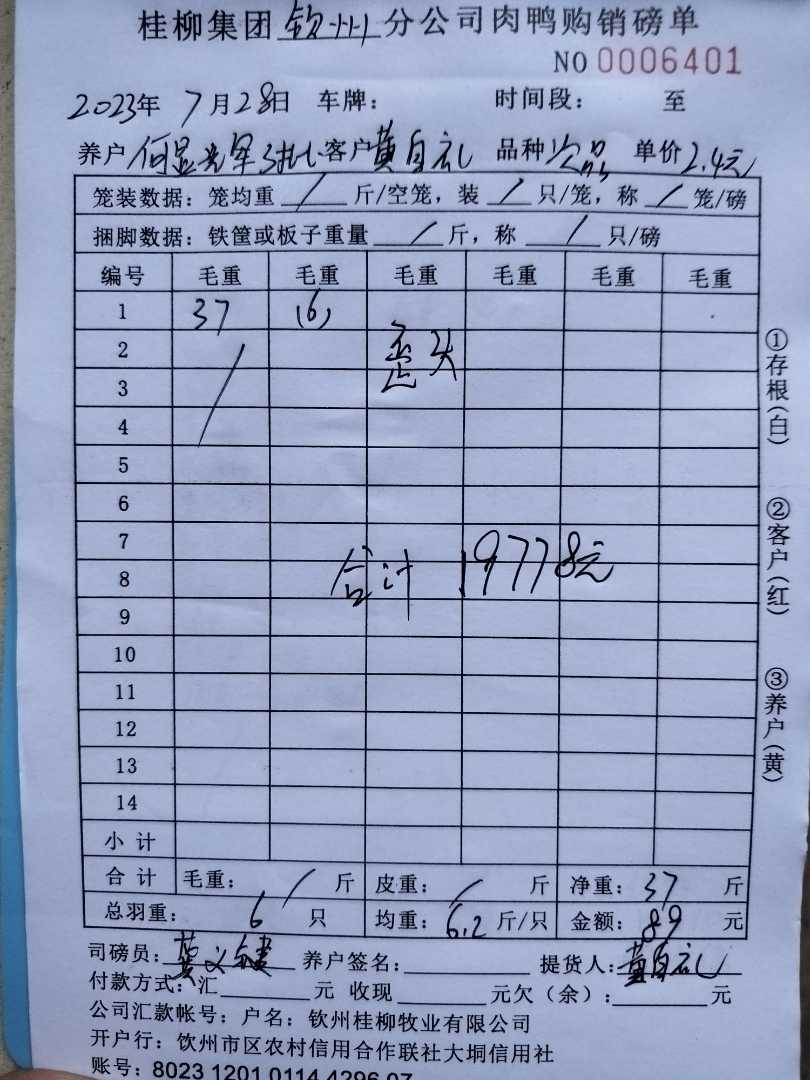 桂柳集团 钦州 分公司肉鸭购销磅单
NO 0006401
2023年 7月28日 车牌： 时间段： 至
养户 何显光军 客户 黄自礼 品种 次品 单价 2.4元
笼装数据：笼均重 / 斤/空笼，装 / 只/笼，称 / 笼/磅
捆脚数据：铁筐或板子重量 / 斤，称 / 只/磅
编号 毛重 毛重 毛重 毛重 毛重 毛重
1 37 (6)
2
3
4
5
6
7
合计 19778元
8
9
10
11
12
13
14
小计
合计 毛重： / 斤 皮重： / 斤 净重：37 斤
总羽重： 6 只 均重：6.2 斤/只 金额：89 元
司磅员：黄义 养户签名： 提货人：黄自礼
付款方式：汇 元 收现 元欠（余）： 元
公司汇款帐号：户名：钦州桂柳牧业有限公司
开户行：钦州市区农村信用合作联社大垌信用社
账号：8023 1201 0114 4296 07
①存根(白)
②客户(红)
③养户(黄)